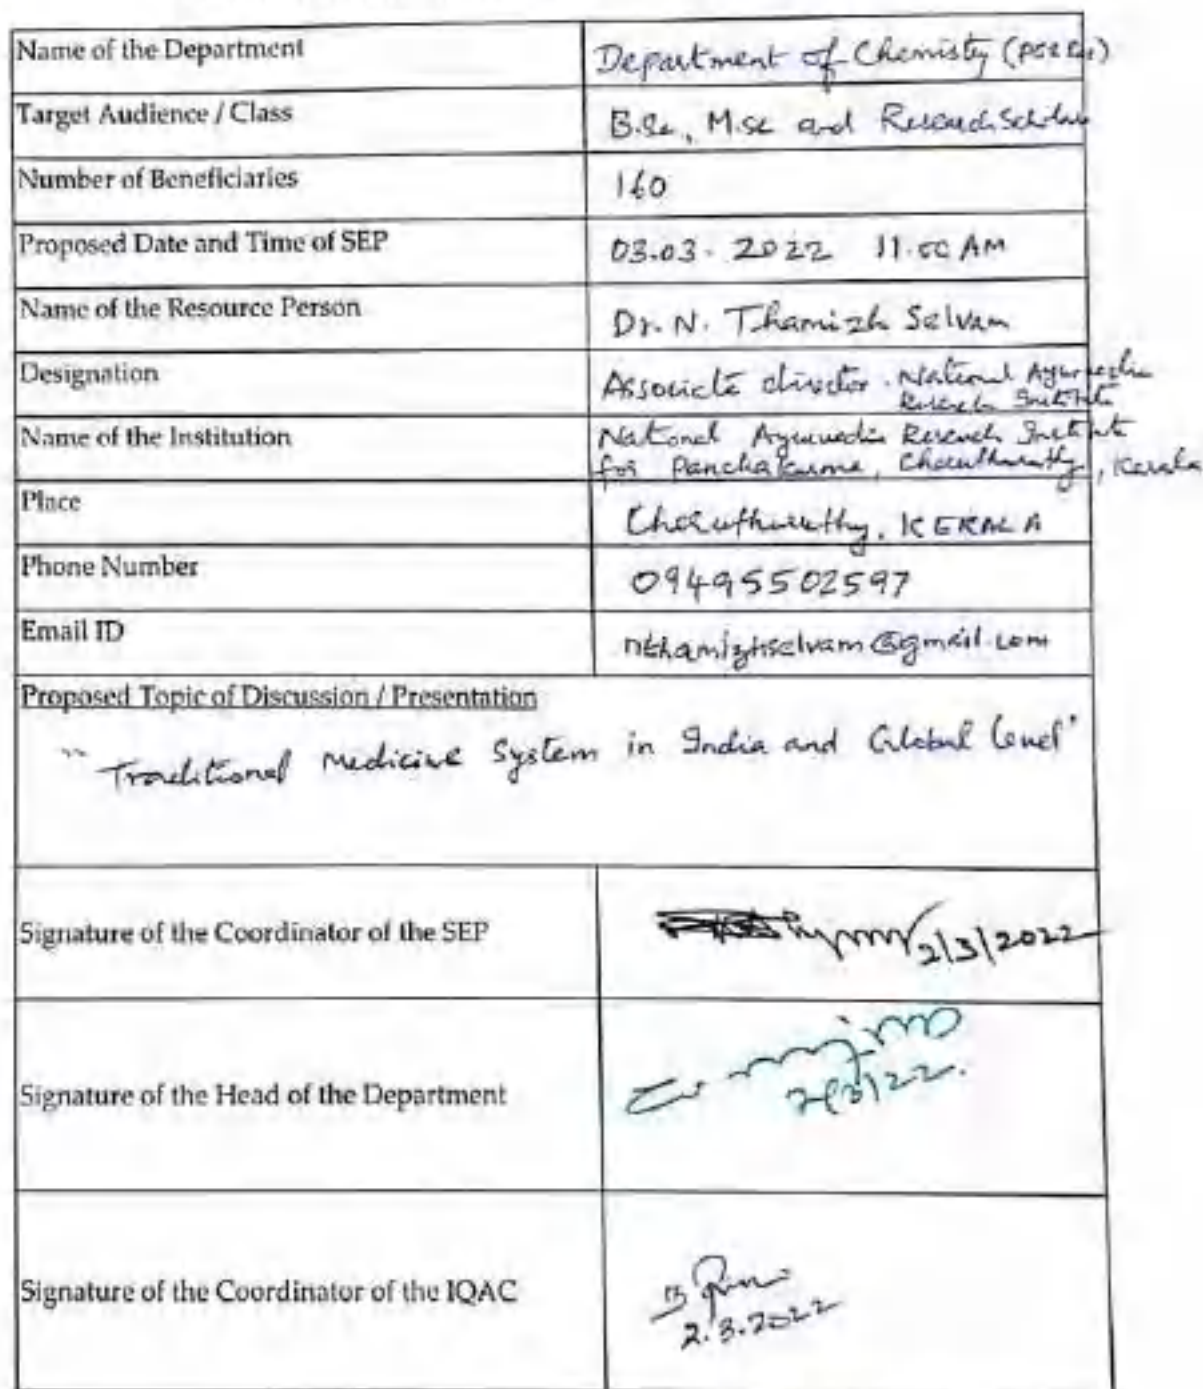 Name of the Department
Department of Chemistry
Target Audience / Class
B.Sc, M.Sc and Research Scholars
Number of Beneficiaries
160
Proposed Date and Time of SEP
03.03.2022 11.00 AM
Name of the Resource Person
Dr. N. Thamizh Selvam
Designation
Associate director. National Ayurvedic
Research Institute
Name of the Institution
National Ayurvedic Research Institute
for Panchakarma, Cheruthuruthy, Kerala
Place
Cheruthuruthy, KERALA
Phone Number
09495502597
Email ID
nthamizhselvam@gmail.com
Proposed Topic of Discussion / Presentation
"Traditional Medicine System in India and Global level"
Signature of the Coordinator of the SEP
2/3/2022
Signature of the Head of the Department
2/3/22.
Signature of the Coordinator of the IQAC
2.3.2022